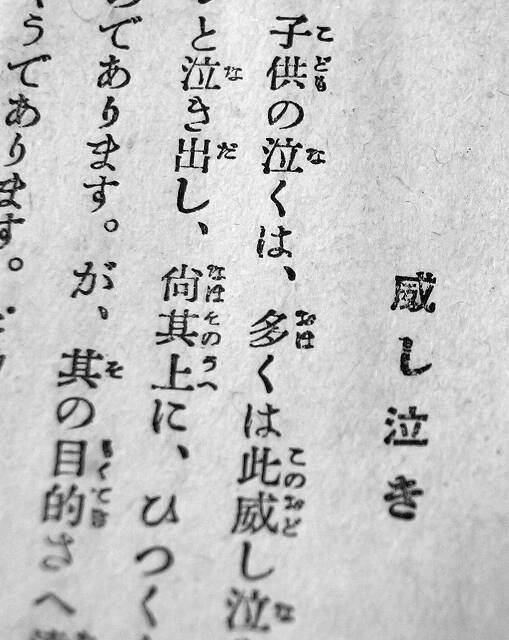 威し泣き
子供の泣くは、多くは此威し泣
と泣き出し、尚其上に、ひつく
であります。が、其の目的さへ
うであります。